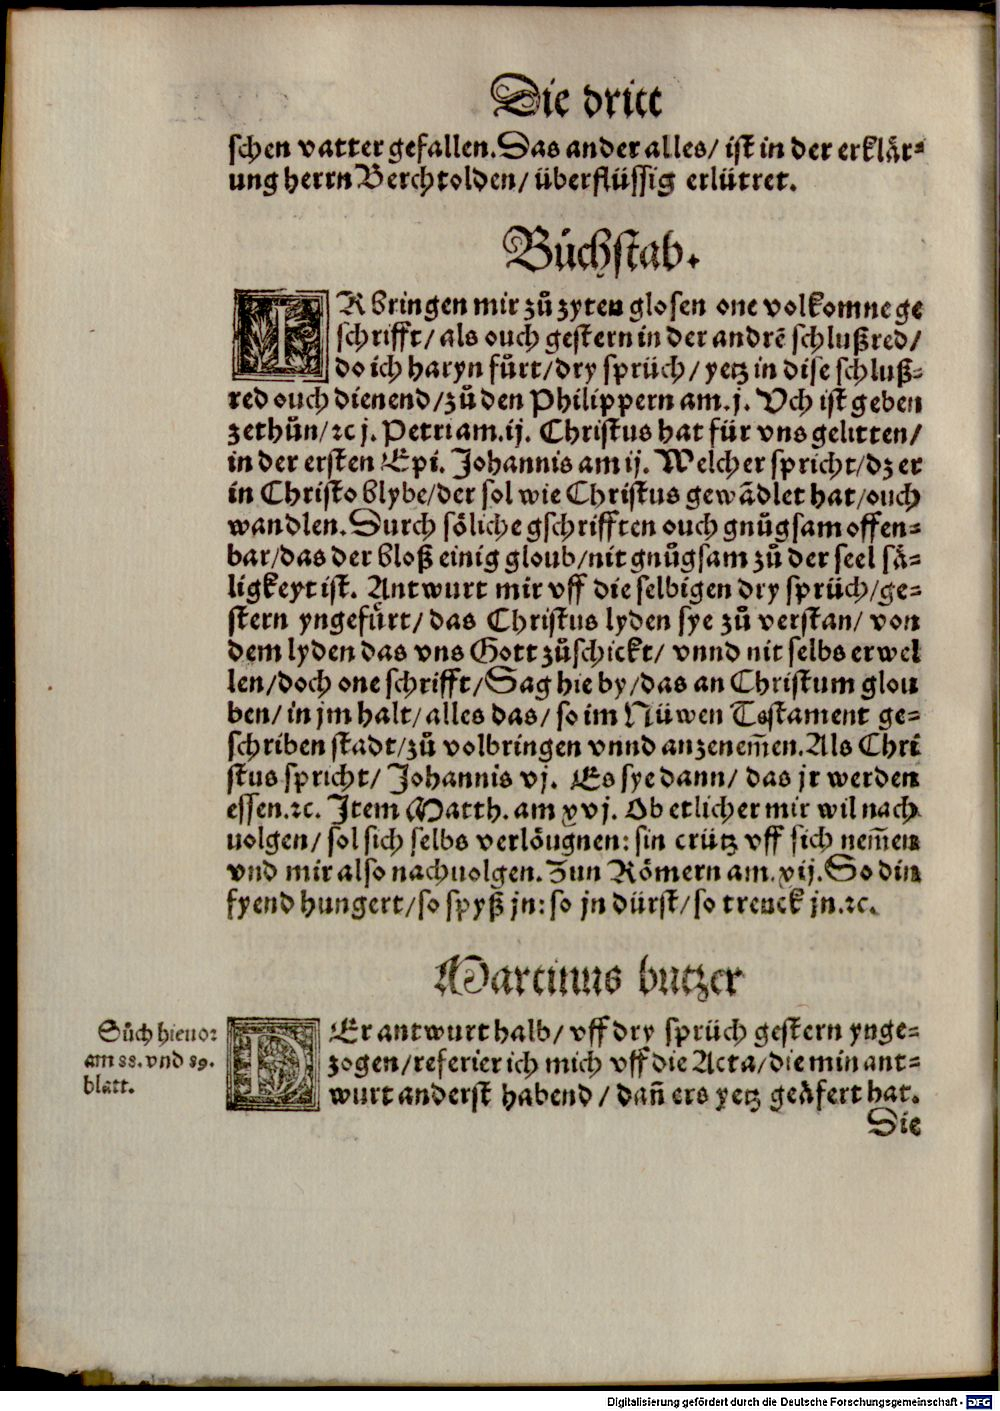 Die dritt
schen vatter gefallen. Das ander alles/ ist in der erklår⸗
ung herrn Berchtolden/ überflüssig erlütret.
Bůchstab.
IR bringen mir zů zyten glosen one volkomne ge
schrifft/ als ouch gestern in der andrē schlußred/
do ich haryn fůrt/dry sprüch/ yetz in dise schluß⸗
red ouch dienend/zů den Philippern am.j. Vch ist geben
zethůn/ꝛc j. Petri am.ij. Christus hat für vns gelitten/
in der ersten Epi. Johannis am ij. Welcher spricht/dz er
in Christo blybe/der sol wie Christus gewādlet hat/ouch
wandlen. Durch sőliche gschrifften ouch gnůgsam offen⸗
bar/das der bloß einig gloub/nit gnůgsam zů der seel så⸗
ligkeyt ist. Antwurt mir vff die selbigen dry sprüch/ge⸗
stern yngefůrt/ das Christus lyden sye zů verstan/ von
dem lyden das vns Gott zůschickt/ vnnd nit selbs erwel
len/doch one schrifft/Sag hie by/das an Christum glou
ben/ in jm halt/ alles das/ so im Nüwen Testament ge⸗
schriben stadt/zů volbringen vnnd anzenem̃en. Als Chri
stus spricht/ Johannis vj. Es sye dann/ das jr werden
essen.ꝛc. Item Matth. am xvj. Ob etlicher mir wil nach
uolgen/ sol sich selbs verlőugnen: sin crütz vff sich nem̃en
vnd mir also nachuolgen. Zun Rőmern am.xij. So din
fyend hungert/so spyß jn: so jn dürst/ so trenck jn.ꝛc.
Martinus butzer
Sůch hieuor
am 88. vnd 89.
blatt.
DEr antwurt halb/ vff dry sprüch gestern ynge⸗
zogen/referier ich mich vff die Acta/die min ant⸗
wurt anderst habend/ dañ ers yetz geåfert hat.
Die
Digitalisierung gefördert durch die Deutsche Forschungsgemeinschaft - DFG